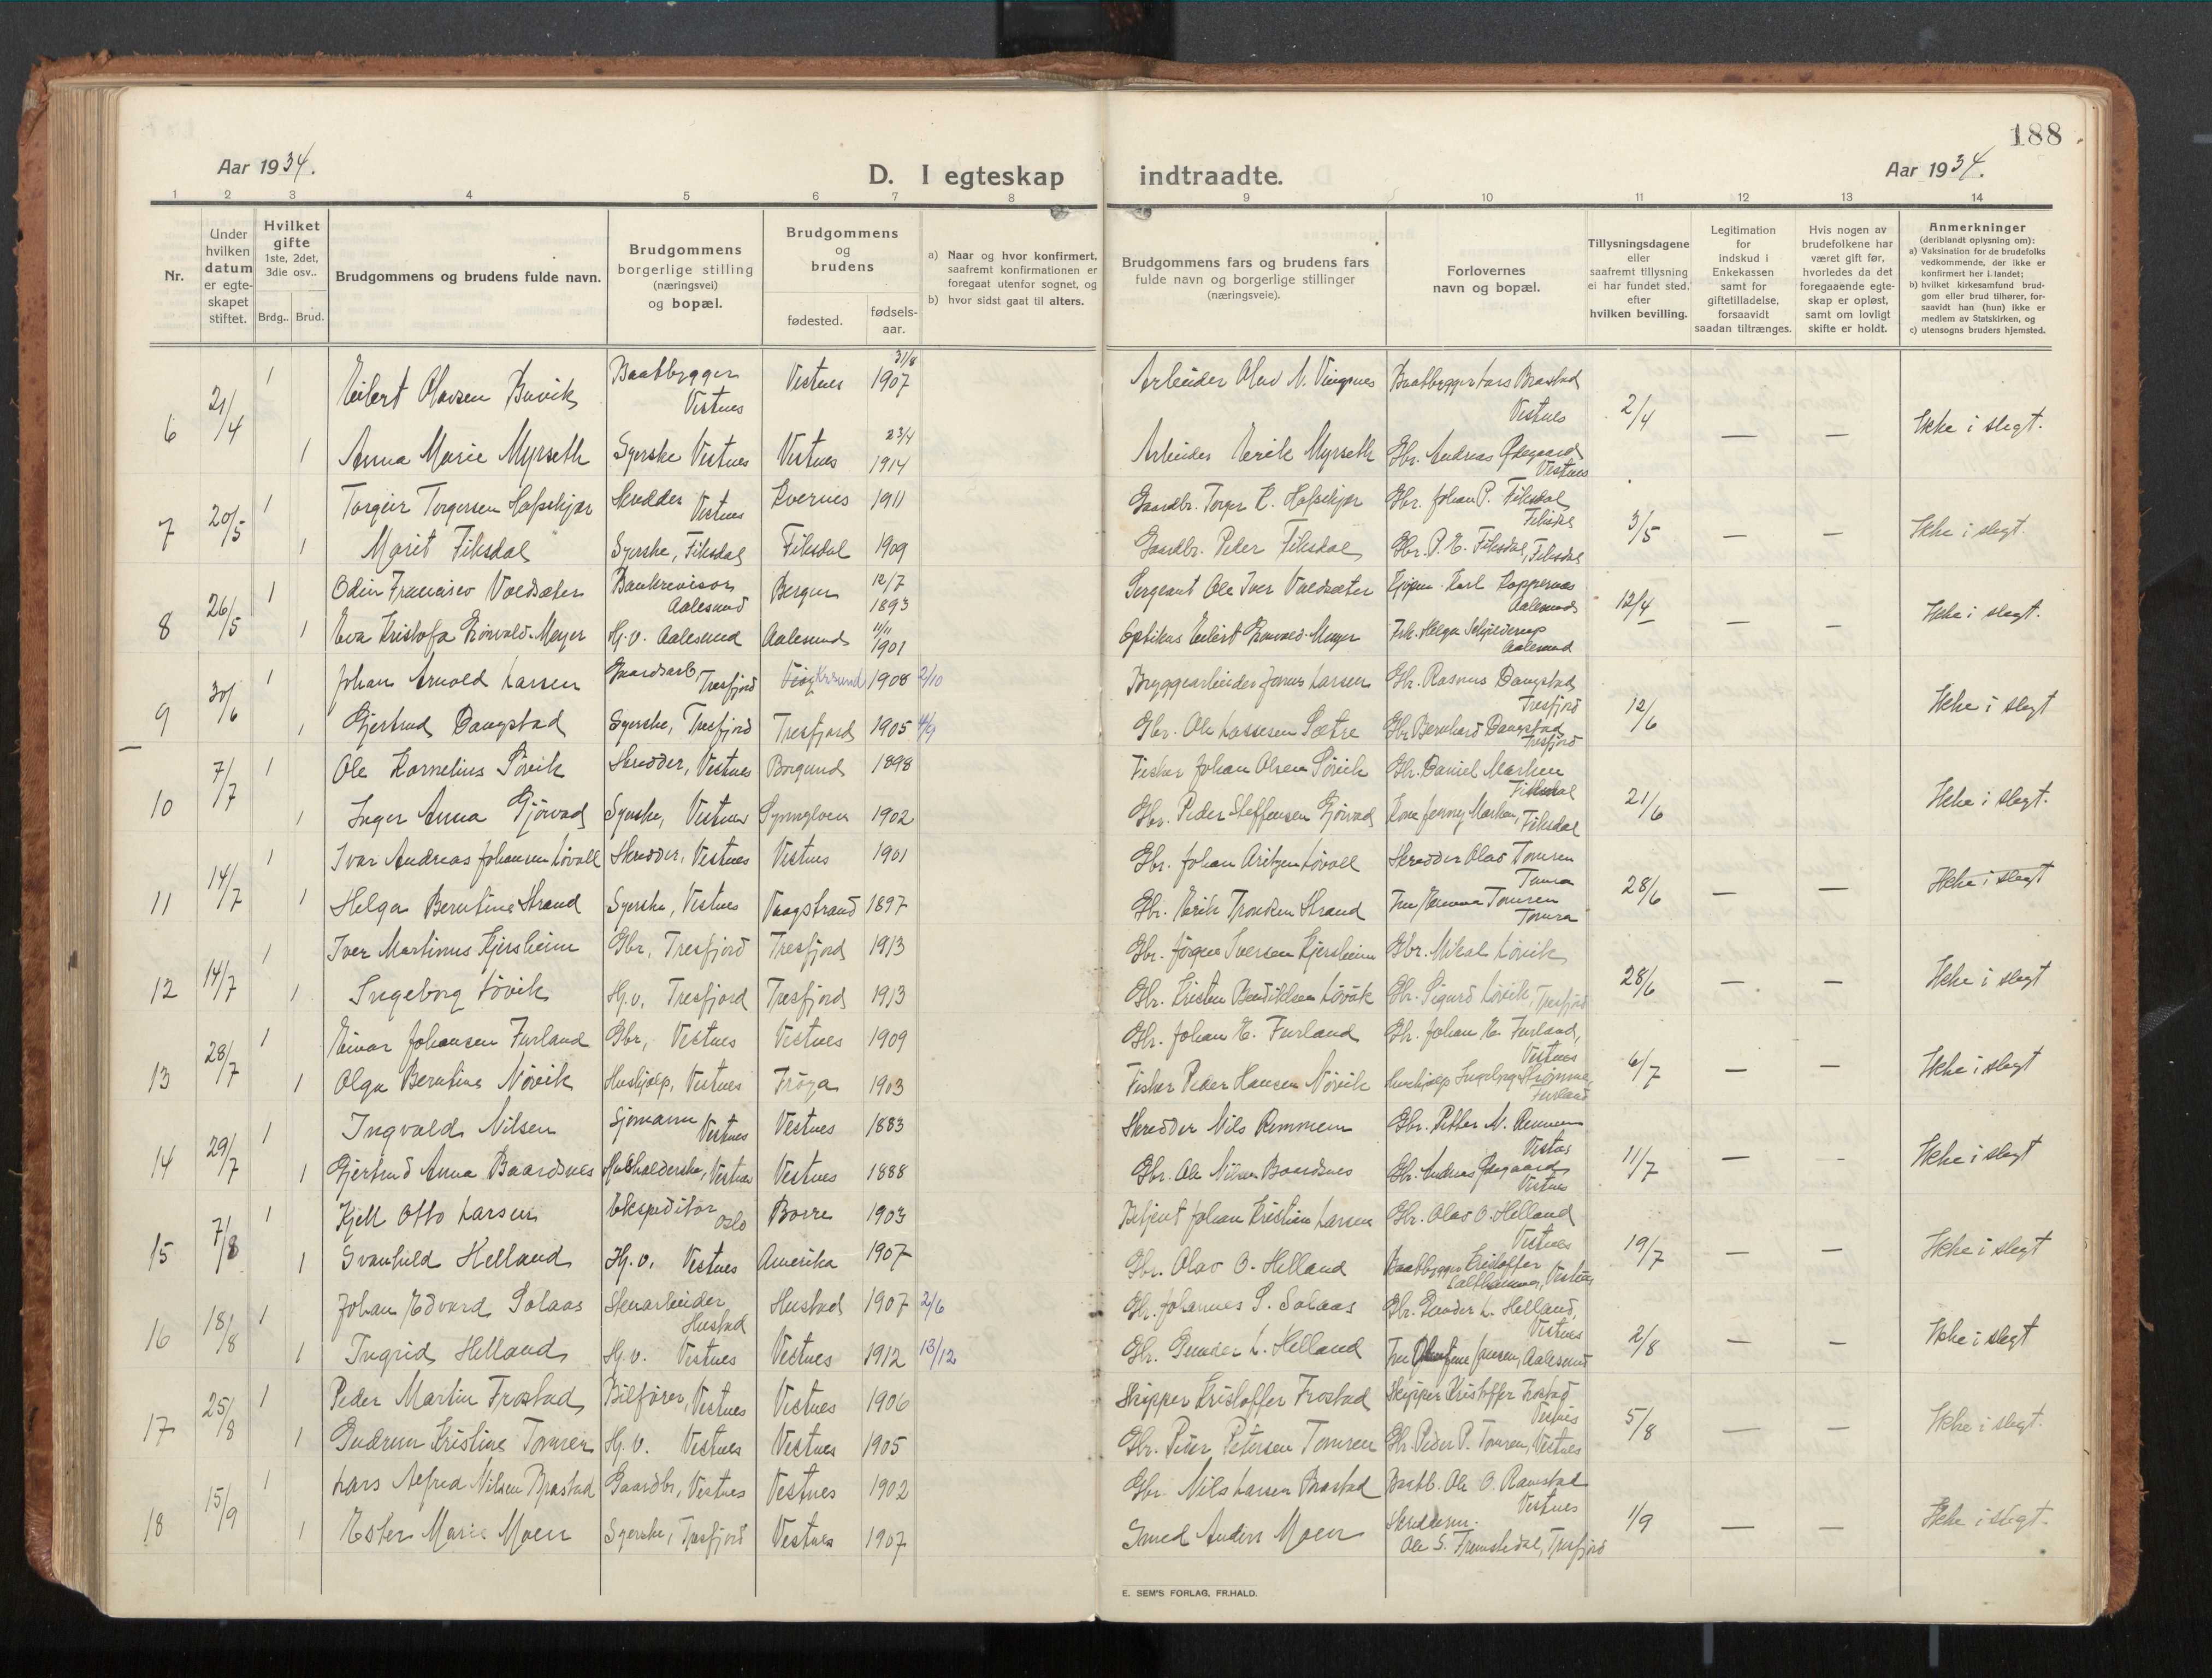 188
Aar 1934.
D. I egteskap indtraadte.
Aar 1934.
1 2 3 4 5 6 7 8 9 10 11 12 13 14
Nr.
Under hvilken datum er egteskapet stiftet.
Hvilket gifte 1ste, 2det, 3die osv..
Brdg.. Brud.
Brudgommens og brudens fulde navn.
Brudgommens borgerlige stilling (næringsvei) og bopæl.
Brudgommens og brudens
fødested.
fødsels-aar.
a) Naar og hvor konfirmert, saafremt konfirmationen er foregaat utenfor sognet, og
b) hvor sidst gaat til alters.
Brudgommens fars og brudens fars fulde navn og borgerlige stillinger (næringsveie).
Forlovernes navn og bopæl.
Tillysningsdagene eller saafremt tillysning ei har fundet sted. efter hvilken bevilling.
Legitimation for indskud i Enkekassen samt for giftetilladelse, forsaavidt saadan tiltrænges.
Hvis nogen av brudefolkene har været gift før, hvorledes da det foregaaende egteskap er opløst, samt om lovligt skifte er holdt.
Anmerkninger (deriblandt oplysning om):
a) Vaksination for de brudefolks vedkommende, der ikke er konfirmert her i landet;
b) hvilket kirkesamfund brudgom eller brud tilhører, forsaavidt han (hun) ikke er medlem av Statskirken, og
c) utensogns bruders hjemsted.
6 21/4 1 Eilert Olavsen Buvik Baatbygger Vestnes Vestnes 31/8 1907 Arbeider Olav N. Vingsnes Baatbygger Lars Brastad Vestnes 2/4 — — Ikke i slegt.
1 Anna Marie Myrseth Syerske Vestnes Vestnes 23/4 1914 Arbeider Eerik Myrseth Gbr. Andreas Ødegaard Vestnes
7 20/5 1 Torgeir Torgersen Hafsskjær Skredder Vestnes Kvernes 1911 Gaardbr. Torger K. Hafsskjær Gbr. Johan P. Fiksdal Fiksdal 3/5 — — Ikke i slegt.
1 Marit Fiksdal Syerske, Fiksdal Fiksdal 1909 Gaardbr. Peder Fiksdal Gbr. P. E. Fiksdal, Fiksdal
8 26/5 1 Odin Francisco Voldsæter Bankrevisor Aalesund Bergen 12/7 1893 Sergeant Ole Iver Voldsæter Kjøpm. Karl Koppernæs Aalesund 12/4 — — Ikke i slegt.
1 Eva Kristofa Grønvold-Meyer Hj.v. Aalesund Aalesund 11/11 1901 Optikus Eilert Grønvold-Meyer Frk. Helga Schjelderup Aalesund
9 30/6 1 Johan Arnold Larsen Gaardsarb. Tresfjord Krsund 1908 2/10 Bryggearbeider Jonas Larsen Gbr. Rasmus Daugstad Tresfjord 12/6 Ikke i slegt
1 Gjertrud Daugstad Syerske, Tresfjord Tresfjord 1905 4/9 Gbr. Ole Lassesen Sætre Gbr. Bernhard Daugstad Tresfjord
10 7/7 1 Ole Kornelius Sørvik Skredder, Vestnes Borgund 1898 Fisker Johan Olsen Sørvik Gbr. Daniel Marken Fiksdal 21/6 Ikke i slegt.
1 Inger Anna Gjørvad Syerske, Vestnes 1902 Gbr. Peder Steffensen Gjørvad Kone Jenny Marken, Fiksdal
11 14/7 1 Ivar Andreas Johansen Løvoll Skredder, Vestnes Vestnes 1901 Gbr. Johan Løvoll Skredder Olav Tomren Tomra 28/6 — — Ikke i slegt
1 Helga Berntine Strand Syerske, Vestnes Vaagstrand 1897 Gbr. Eerik Trondsen Strand Fru Emma Tomren Tomra
12 14/7 1 Iver Martinus Kjersheim Gbr, Tresfjord Tresfjord 1913 Gbr. Jørgen Iversen Kjersheim Gbr. Mikal Løvik 28/6 — — Ikke i slegt
1 Ingeborg Løvik Hj.v. Tresfjord Tresfjord 1913 Gbr. Kristen Bendiktsen Løvik Gbr. Sigurd Løvik, Tresfjord
13 28/7 1 Einar Johansen Furland Gbr, Vestnes Vestnes 1909 Gbr. Johan E. Furland Gbr. Johan E. Furland, Vestnes 6/7 — — Ikke i slegt
1 Olga Berntine Nørvik Hushjælp, Vestnes Frøya 1903 Fisker Peder Hansen Nørvik Hushjælp Ingeborg Strømme, Furland
14 29/7 1 Ingvald Nilsen Sjømann Vestnes Vestnes 1883 Skredder Nils Remmem Gbr. Petter N. Remmem Vestnes 11/7 — - Ikke i slegt
1 Gjertrud Anna Baardsnes Husholderske, Vestnes Vestnes 1888 Gbr. Ole Nilsen Baardsnes Gbr. Andreas Ødegaard Vestnes
15 7/8 1 Kjell Otto Larsen Ekspeditør Oslo Borre 1903 Betjent Johan Kristian Larsen Gbr. Olav O. Helland Vestnes 19/7 — — Ikke i slegt
1 Svanhild Helland Hj.v. Vestnes Amerika 1907 Gbr. Olav O. Helland Baatbygger Kristoffer Salthammer, Vestnes
16 18/8 1 Johan Edvard Solaas Stenarbeider Hustad Hustad 1907 2/6 Gbr. Johannes S. Solaas Gbr. Gunder L. Helland, Vestnes 2/8 — — Ikke i slegt
1 Ingrid Helland Hj.v. Vestnes Vestnes 1912 13/12 Gbr. Gunder L. Helland Fru Jensen, Aalesund
17 25/8 1 Peder Martin Frostad Bilfører, Vestnes Vestnes 1906 Skipper Kristoffer Frostad Skipper Kristoffer Frostad Vestnes 5/8 — — Ikke i slegt.
1 Gudrun Kristine Tomren Hj.v. Vestnes Vestnes 1905 Gbr. Peder Petersen Tomren Gbr. Peder P. Tomren, Vestnes
18 15/9 1 Lars Alfred Nilsen Brastad Gaardbr, Vestnes Vestnes 1902 Gbr. Nils Larsen Brastad Baatb. Ole O. Ramstad Vestnes 1/9 — — Ikke i slegt.
1 Ester Marie Moen Syerske, Tresfjord Vestnes 1907 Smed Anders Moen Skredderm. Ole S. Fremstedal, Tresfjord
E. SEM'S FORLAG, FR.HALD.